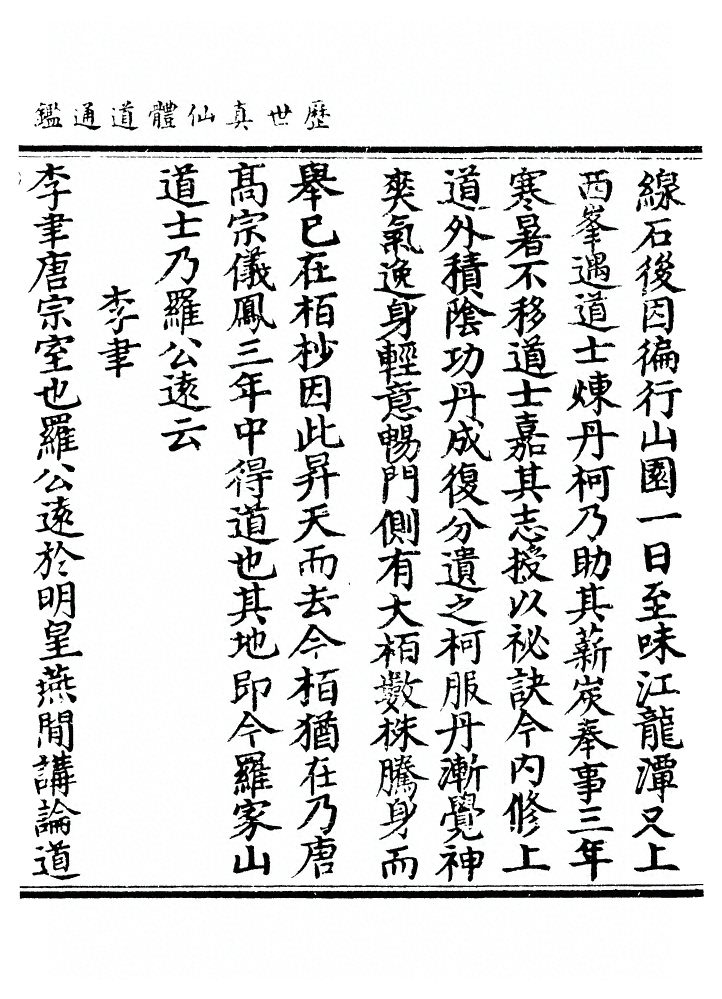 歷世真仙體道通鑑
線石後因徧行山園一日至味江龍潭又上
西峯遇道士煉丹柯乃助其薪炭奉事三年
寒暑不移道士嘉其志授以祕訣令內修上
道外積陰功丹成復分遺之柯服丹漸覺神
爽氣逸身輕意暢門側有大栢數株騰身而
舉已在栢杪因此昇天而去今栢猶在乃唐
髙宗儀鳳三年中得道也其地即今羅家山
道士乃羅公遠云
李聿
李聿唐宗室也羅公遠於明皇燕閒講論道